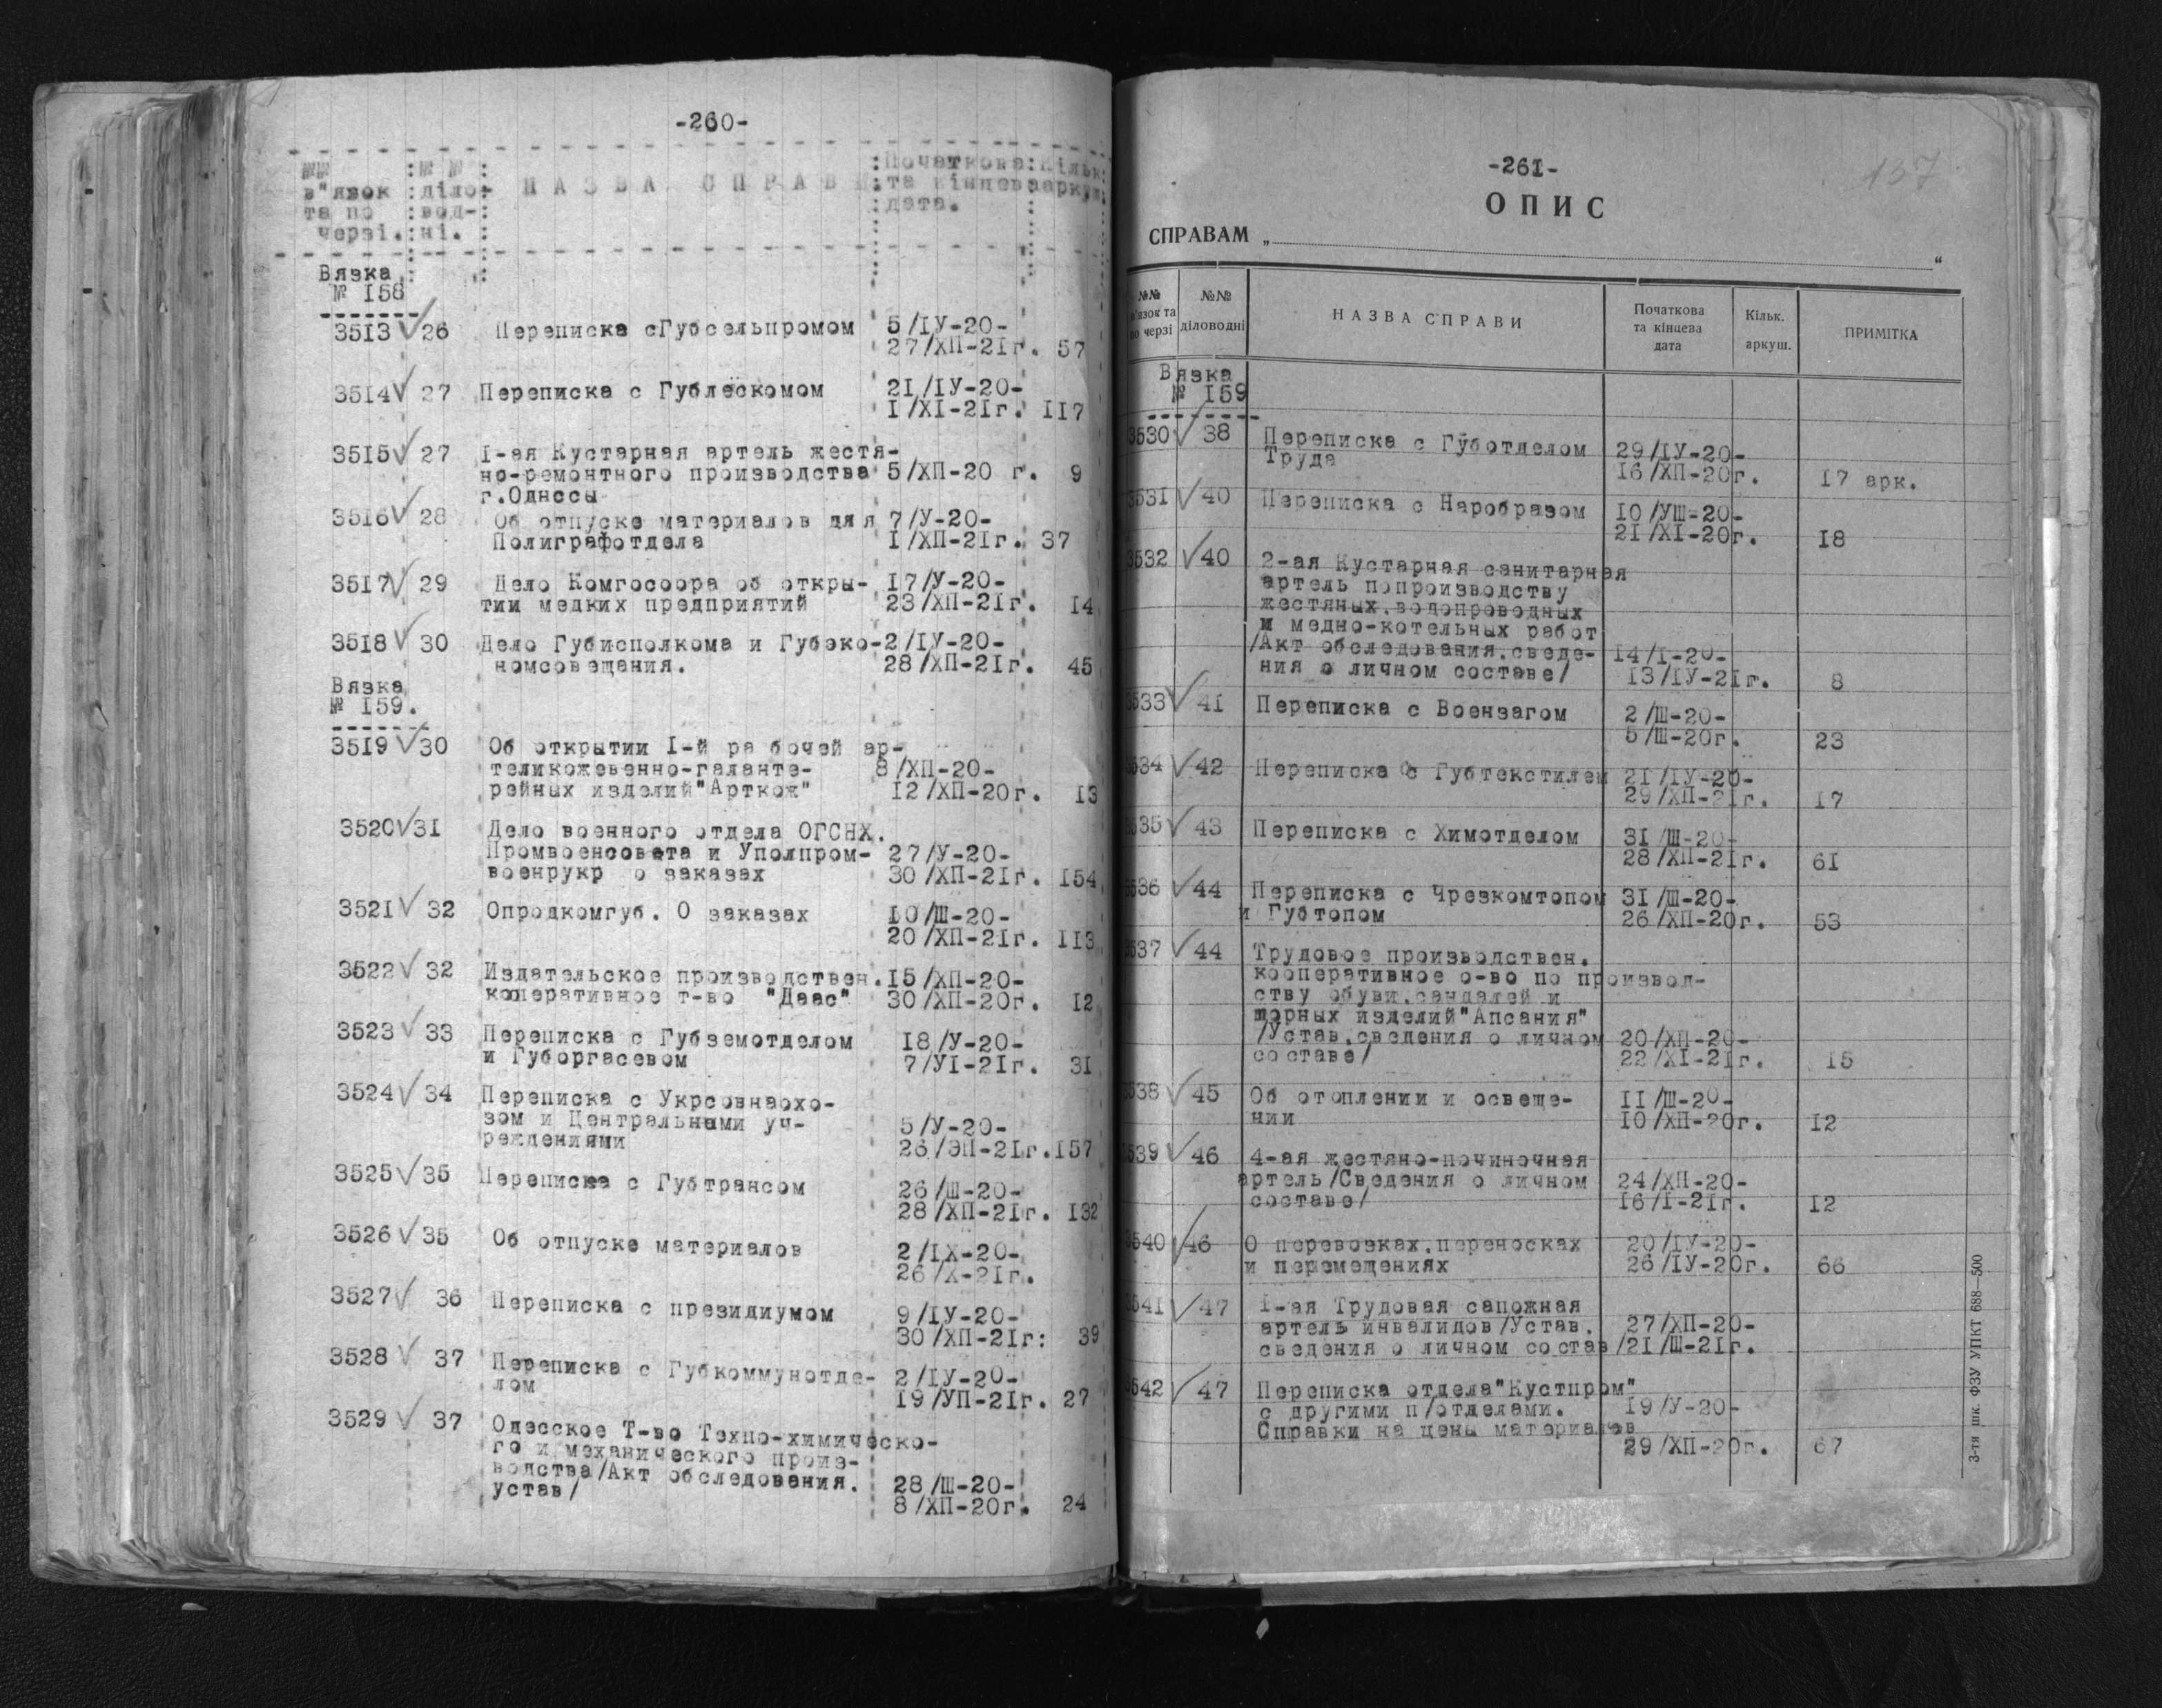 -260-
№№ : № № : Початкова: Кільк.
в"язок : діло- : НАЗВА СПРАВИ : та кінцева аркуш.
та по : вод- : дата.
черзі. : ні. :
Вязка
№ 158
3513 26 Переписка сГубсельпромом 5/IУ-20-
27/ХП-21г. 57
3514 27 Переписка с Гублескомом 21/IУ-20-
I/XI-21г. 117
3515 27 I-ая Кустарная артель жестя-
но-ремонтного производства 5/ХП-20 г. 9
г.Одессы
3516 28 Об отпуске материалов для 7/У-20-
Полиграфотдела I/ХП-21г. 37
3517 29 Дело Комгосоора об откры- 17/У-20-
тии медких предприятий 23/ХП-21г. 14
3518 30 Дело Губисполкома и Губэко- 2/IУ-20-
номсовещания. 28/ХП-21г. 45
Вязка
№ 159.
3519 30 Об открытии I-й ра бочей ар-
теликожевенно-галанте- 8/ХП-20-
рейных изделий"Арткож" 12/ХП-20г. 13
3520 31 Дело военного отдела ОГСНХ.
Промвоенсовета и Уполпром- 27/У-20-
военрукр о заказах 30/ХП-21г. 154
3521 32 Опродкомгуб. О заказах 10/Ш-20-
20/ХП-21г. 113
3522 32 Издательское производствен. 15/ХП-20-
коперативное т-во "Даас" 30/ХП-20г. 12
3523 33 Переписка с Губземотделом 18/У-20-
и Губоргасевом 7/УI-21г. 31
3524 34 Переписка с Укрсовнархо-
зом и Центральными уч- 5/У-20-
реждениями 26/ЭП-21г. 157
3525 35 Переписка с Губтрансом 26/Ш-20-
28/ХП-21г. 132
3526 35 Об отпуске материалов 2/IX-20-
26/Х-21г.
3527 36 Переписка с президиумом 9/IУ-20-
30/ХП-21г: 39
3528 37 Переписка с Губкоммунотде- 2/IУ-20-
лом 19/УП-21г. 27
3529 37 Одесское Т-во Техно-химическо-
го и механического произ-
водства/Акт обследования. 28/Ш-20-
устав/ 8/ХП-20г. 24
-261-
137
ОПИС
СПРАВАМ „ “
№№ №№ НАЗВА СПРАВИ Початкова Кільк. ПРИМІТКА
в'язок та діловодні та кінцева аркуш.
по черзі дата
Вязка
№ 159
3530 38 Переписка с Губотделом 29/IУ-20-
Труда 16/ХП-20г. 17 арк.
3531 40 Переписка с Наробразом 10/УШ-20-
21/XI-20г. 18
3532 40 2-ая Кустарная санитарная
артель попроизводству
жестяных.водопроводных
и медно-котельных работ
/Акт обследования.сведе- 14/I-20-
ния о личном составе/ 13/IУ-21г. 8
3533 41 Переписка с Воензагом 2/Ш-20-
5/Ш-20г. 23
3534 42 Переписка с Губтекстилем 21/IУ-20-
29/ХП-21г. 17
3535 43 Переписка с Химотделом 31/Ш-20-
28/ХП-21г. 61
3536 44 Переписка с Чрезкомтопом 31/Ш-20-
и Губтопом 26/ХП-20г. 53
3537 44 Трудовое производствен.
кооперативное о-во по производ-
ству обуви.сандалей и
шорных изделий"Апсания"
/Устав.сведения о личном 20/ХП-20-
составе/ 22/XI-21г. 15
3538 45 Об отоплении и освеще- 11/Ш-20-
нии 10/ХП-20г. 12
3539 46 4-ая жестяно-починочная
артель/Сведения о личном 24/ХП-20-
составе/ 16/I-21г. 12
3540 46 О перевозках.переносках 20/IУ-20-
и перемещениях 26/IУ-20г. 66
3541 47 I-ая Трудовая сапожная
артель инвалидов/Устав. 27/ХП-20-
сведения о личном состав/ 21/Ш-21г.
3542 47 Переписка отдела"Кустпром"
с другими п/отделами. 19/У-20-
Справки на цены материалов
29/ХП-20г. 67
3-тя шк ФЗУ УПКТ 688—500